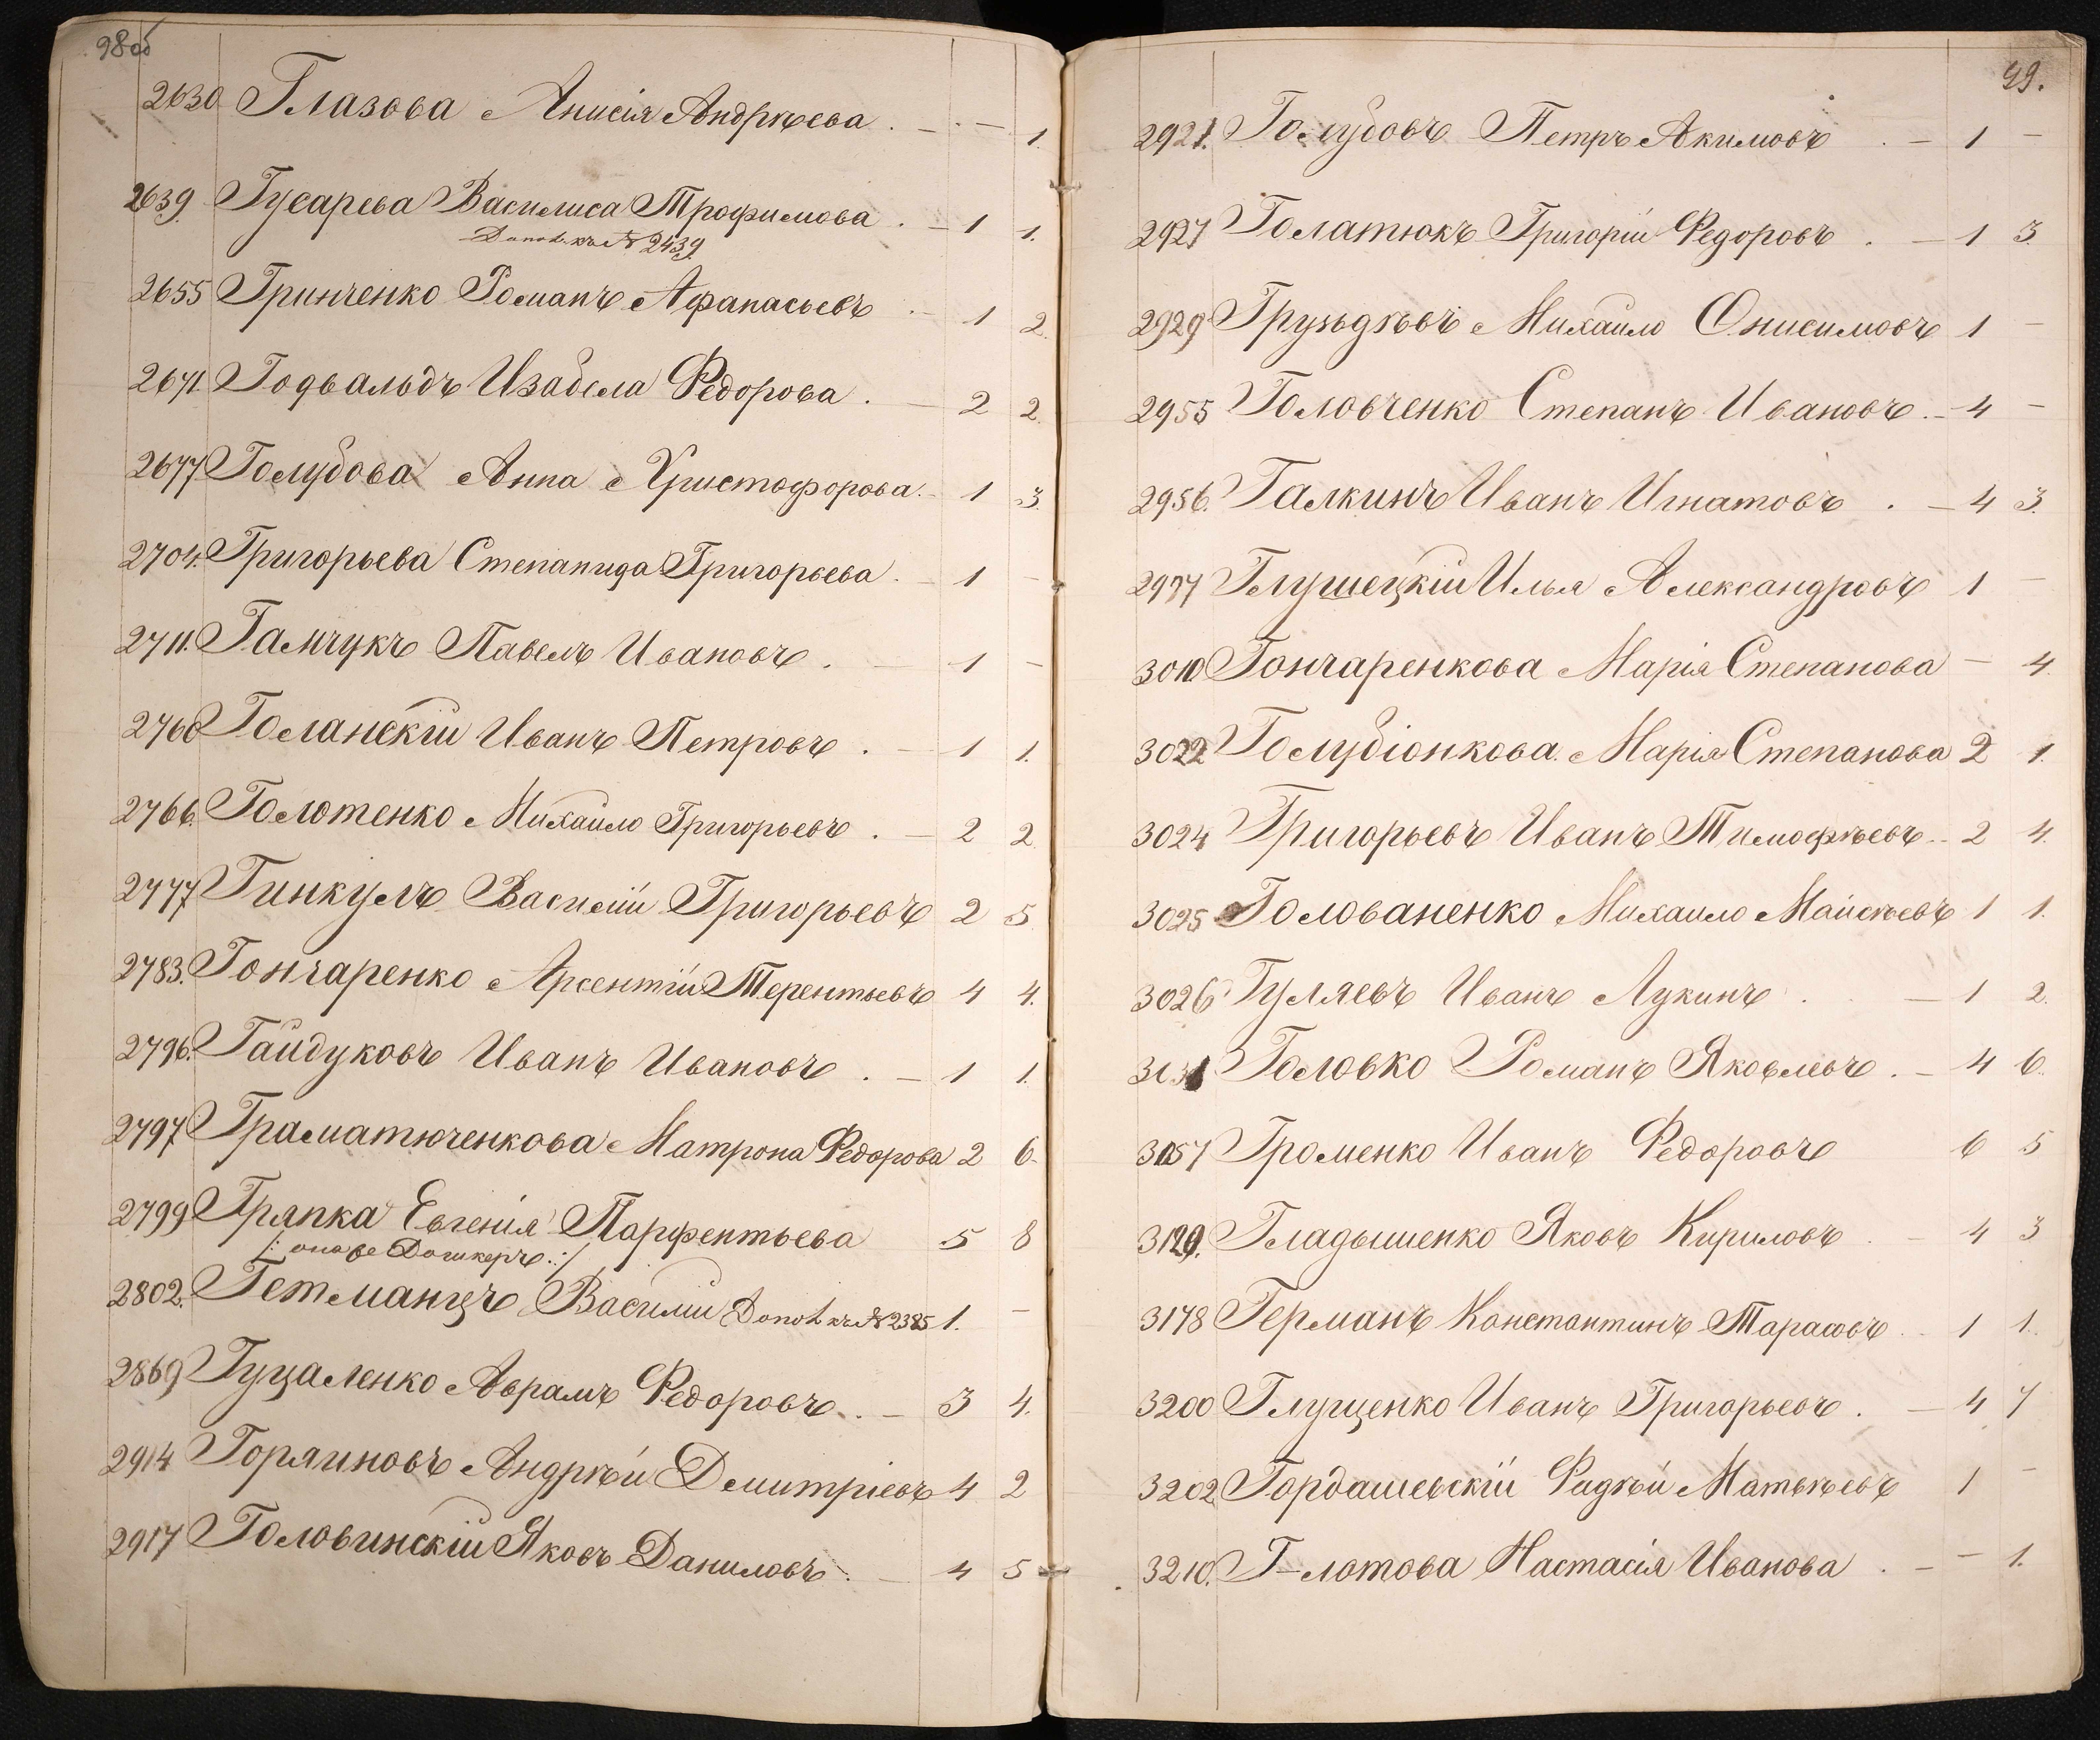 98об
2630 Глазова Анисія Андрѣева . - . - 1.
2639. Гусарева Василиса Трофимова . - 1 1.
Допол. къ № 2439.
2655 Гринченко Романъ Афанасьевъ . - 1 2.
2671. Годвальдъ Изабела Федорова . - 2 2.
2677. Голубова Анна Христофорова . - 1 3.
2704. Григорьева Степанида Григорьева . - 1 -
2711. Гамчукъ Павелъ Ивановъ . - 1 -
2760 Голанскій Иванъ Петровъ . - 1 1.
2766.Голотенко Михайло Григорьевъ . - 2 2.
2777 Гинкулъ Василій Григорьевъ 2 5.
2783. Гончаренко Арсентій Терентьевъ 4 4.
2796. Гайдуковъ Иванъ Ивановъ . - 1 1.
2797 Граматюченкова Матрона Федорова 2 6.
2799 Гряпка Евгенія Парфентьева 5 8
/: она же :/
2802. Гетманцъ Василій Допол. къ № 2385 1. -
2869 Гуцаленко Аврамъ Федоровъ . - 3 4.
2914 Горяиновъ Андрѣй Дмитріевъ 4 2
2917 Головинскій Яковъ Даниловъ . - 4 5
99.
2921. Голубовъ Петръ Акимовъ . - 1 -
2927 Голатюкъ Григорій Федоровъ . - 1 3.
2929 Груздѣвъ Михайло Онисимовъ 1 -
2955 Головченко Степанъ Ивановъ . - 4 -
2956. Галкинъ Иванъ Игнатовъ . - 4 3.
2977 Глушецкій Илья Александровъ 1 -
3010 Гончаренкова Марія Степанова - 4.
3022 Голубіонкова Марія Степанова 2 1.
3024 Григорьевъ Иванъ Тимофѣевъ . - 2 4.
3025 Голованенко Михайло Майсѣевъ 1 1.
3026 Гуляевъ Иванъ Лукинъ . - 1 2.
3031 Головко Романъ Яковлевъ . - 4 6.
3057 Громенко Иванъ Федоровъ 6 5
3129. Гладышенко Яковъ Кириловъ . - 4 3
3178 Германъ Константинъ Тарасовъ . 1 1.
3200 Глущенко Иванъ Григорьевъ . - 4 7
3202 Гордашевскій Фадѣй Матвѣевъ 1 -
3210. Г-лотова Настасія Иванова . - - 1.